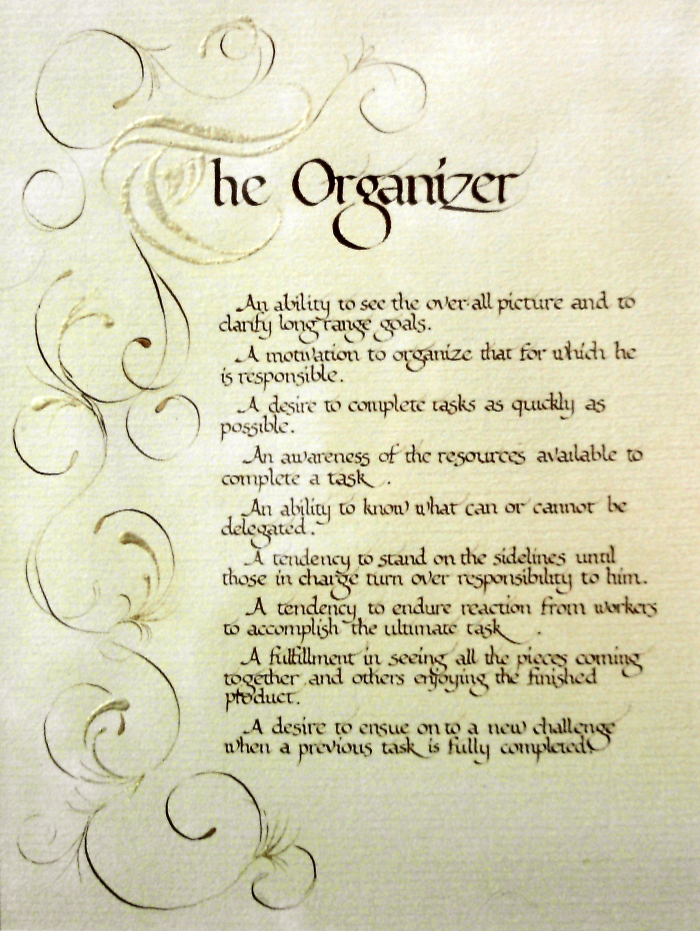 The Organizer
An ability to see the over-all picture and to
clarify long range goals.
A motivation to organize that for which he
is responsible.
A desire to complete tasks as quickly as
possible.
An awareness of the resources available to
complete a task.
An ability to know what can or cannot be
delegated.
A tendency to stand on the sidelines until
those in charge turn over responsibility to him.
A tendency to endure reaction from workers
to accomplish the ultimate task.
A fulfillment in seeing all the pieces coming
together and others enjoying the finished
product.
A desire to ensue on to a new challenge
when a previous task is fully completed.